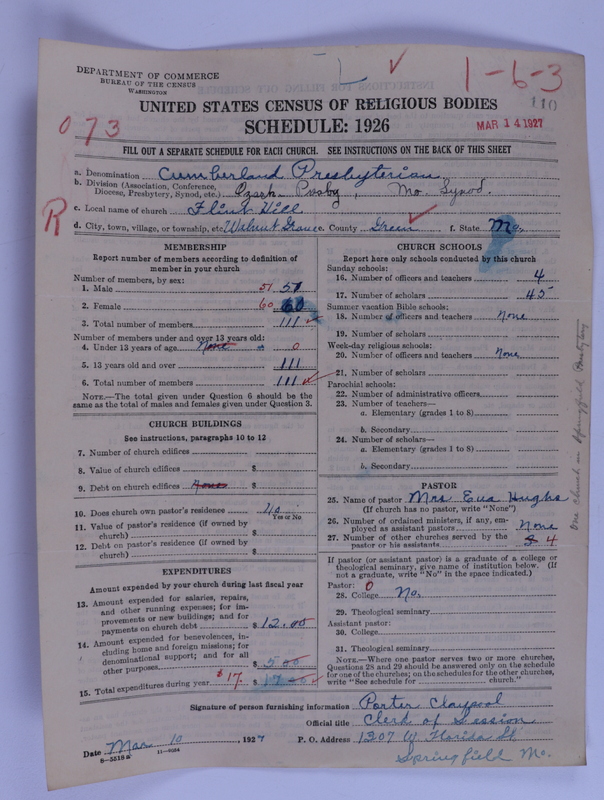 1-6-3
110
DEPARTMENT OF COMMERCE
BUREAU OF THE CENSUS
WASHINGTON
UNITED STATES CENSUS OF RELIGIOUS BODIES
SCHEDULE: 1926
MAR 14 1927
073
FILL OUT A SEPARATE SCHEDULE FOR EACH CHURCH. SEE INSTRUCTIONS ON THE BACK OF THIS SHEET
a. Denomination Cumberland Presbyterian
b. Division (Association, Conference, Diocese, Presbytery, Synod, etc.) Ozark Presby, Mo. Synod.
c. Local name of church Flint Hill
R
d. City, town, village, or township, etc. Walnut Grove e. County Green f. State Mo.
MEMBERSHIP
Report number of members according to definition of
member in your church
Number of members, by sex:
1. Male 51 51
2. Female 60 60
3. Total number of members 111
Number of members under and over 13 years old:
4. Under 13 years of age None 0
5. 13 years old and over 111
6. Total number of members 111
NOTE.—The total given under Question 6 should be the
same as the total of males and females given under Question 3.
CHURCH BUILDINGS
See instructions, paragraphs 10 to 12
7. Number of church edifices
8. Value of church edifices $
9. Debt on church edifices None $
10. Does church own pastor's residence no
Yes or No
11. Value of pastor's residence (if owned by
church) $
12. Debt on pastor's residence (if owned by
church) $
EXPENDITURES
Amount expended by your church during last fiscal year
13. Amount expended for salaries, repairs,
and other running expenses; for im-
provements or new buildings; and for
payments on church debt $ 12.00
14. Amount expended for benevolences, in-
cluding home and foreign missions; for
denominational support; and for all
other purposes $ 5 00
15. Total expenditures during year $17. $ 17 00
CHURCH SCHOOLS
Report here only schools conducted by this church
Sunday schools:
16. Number of officers and teachers 4
17. Number of scholars 45
Summer vacation Bible schools:
18. Number of officers and teachers None
19. Number of scholars
Week-day religious schools:
20. Number of officers and teachers None
21. Number of scholars
Parochial schools:
22. Number of administrative officers
23. Number of teachers—
a. Elementary (grades 1 to 8)
b. Secondary
24. Number of scholars—
a. Elementary (grades 1 to 8)
b. Secondary
PASTOR
25. Name of pastor Mrs Eva Hughs
(If church has no pastor, write "None")
26. Number of ordained ministers, if any, em-
ployed as assistant pastors None
27. Number of other churches served by the
pastor or his assistants 4
If pastor (or assistant pastor) is a graduate of a college or
theological seminary, give name of institution below. (If
not a graduate, write "No" in the space indicated.)
Pastor: 0
28. College No.
29. Theological seminary
Assistant pastor:
30. College
31. Theological seminary
NOTE.—Where one pastor serves two or more churches,
Questions 28 and 29 should be answered only on the schedule
for one of the churches; on the schedules for the other churches,
write "See schedule for church."
One church in Springfield Presbytery
Signature of person furnishing information Porter Claypool
Official title Clerk of Session
Date Mar 10, 1927 P. O. Address 1307 W. Florida St
Springfield Mo.
8-5518a 11-9054